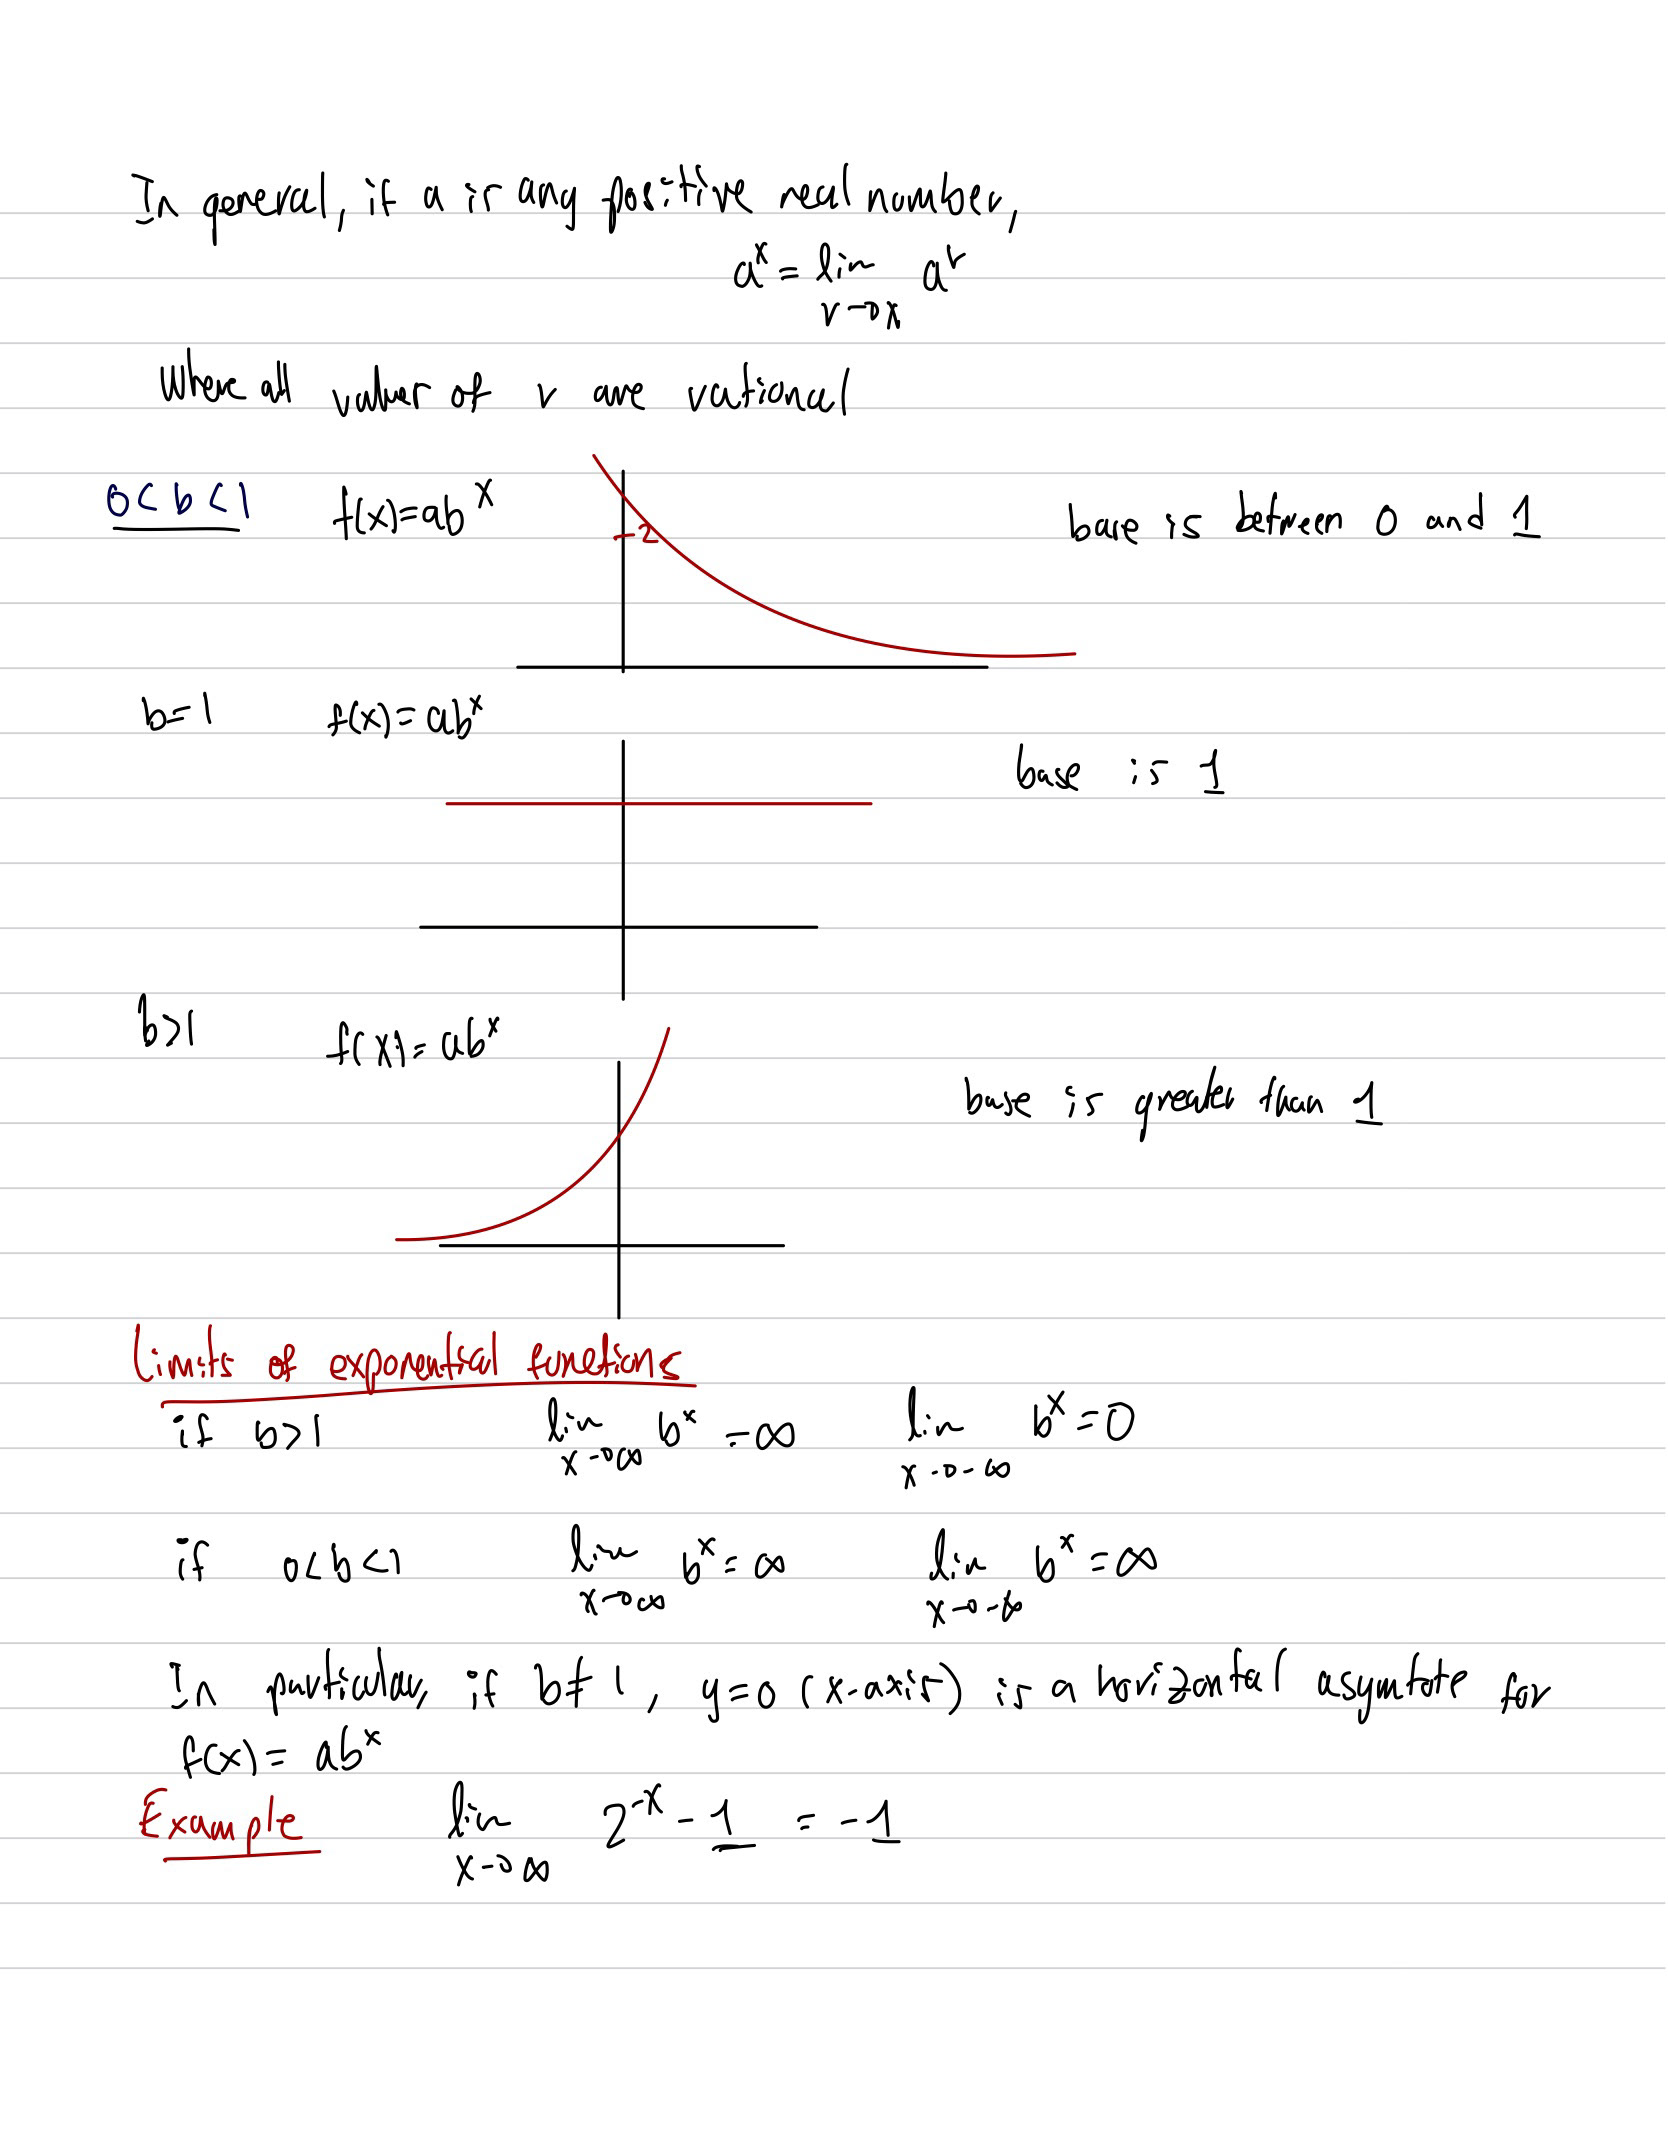 In general, if a is any positive real number,
aˣ = lim aʳ
r→x
Where all values of r are rational
0<b<1 f(x)=abˣ base is between 0 and 1
2
b=1 f(x)=abˣ
base is 1
b>1 f(x)=abˣ
base is greater than 1
Limits of exponential functions
if b>1 lim bˣ =∞ lim bˣ=0
x→∞ x→-∞
if 0<b<1 lim bˣ=∞ lim bˣ=∞
x→∞ x→-∞
In particular, if b≠1, y=0 (x-axis) is a horizontal asymtote for
f(x)= abˣ
Example lim 2⁻ˣ - 1 = -1
x→∞